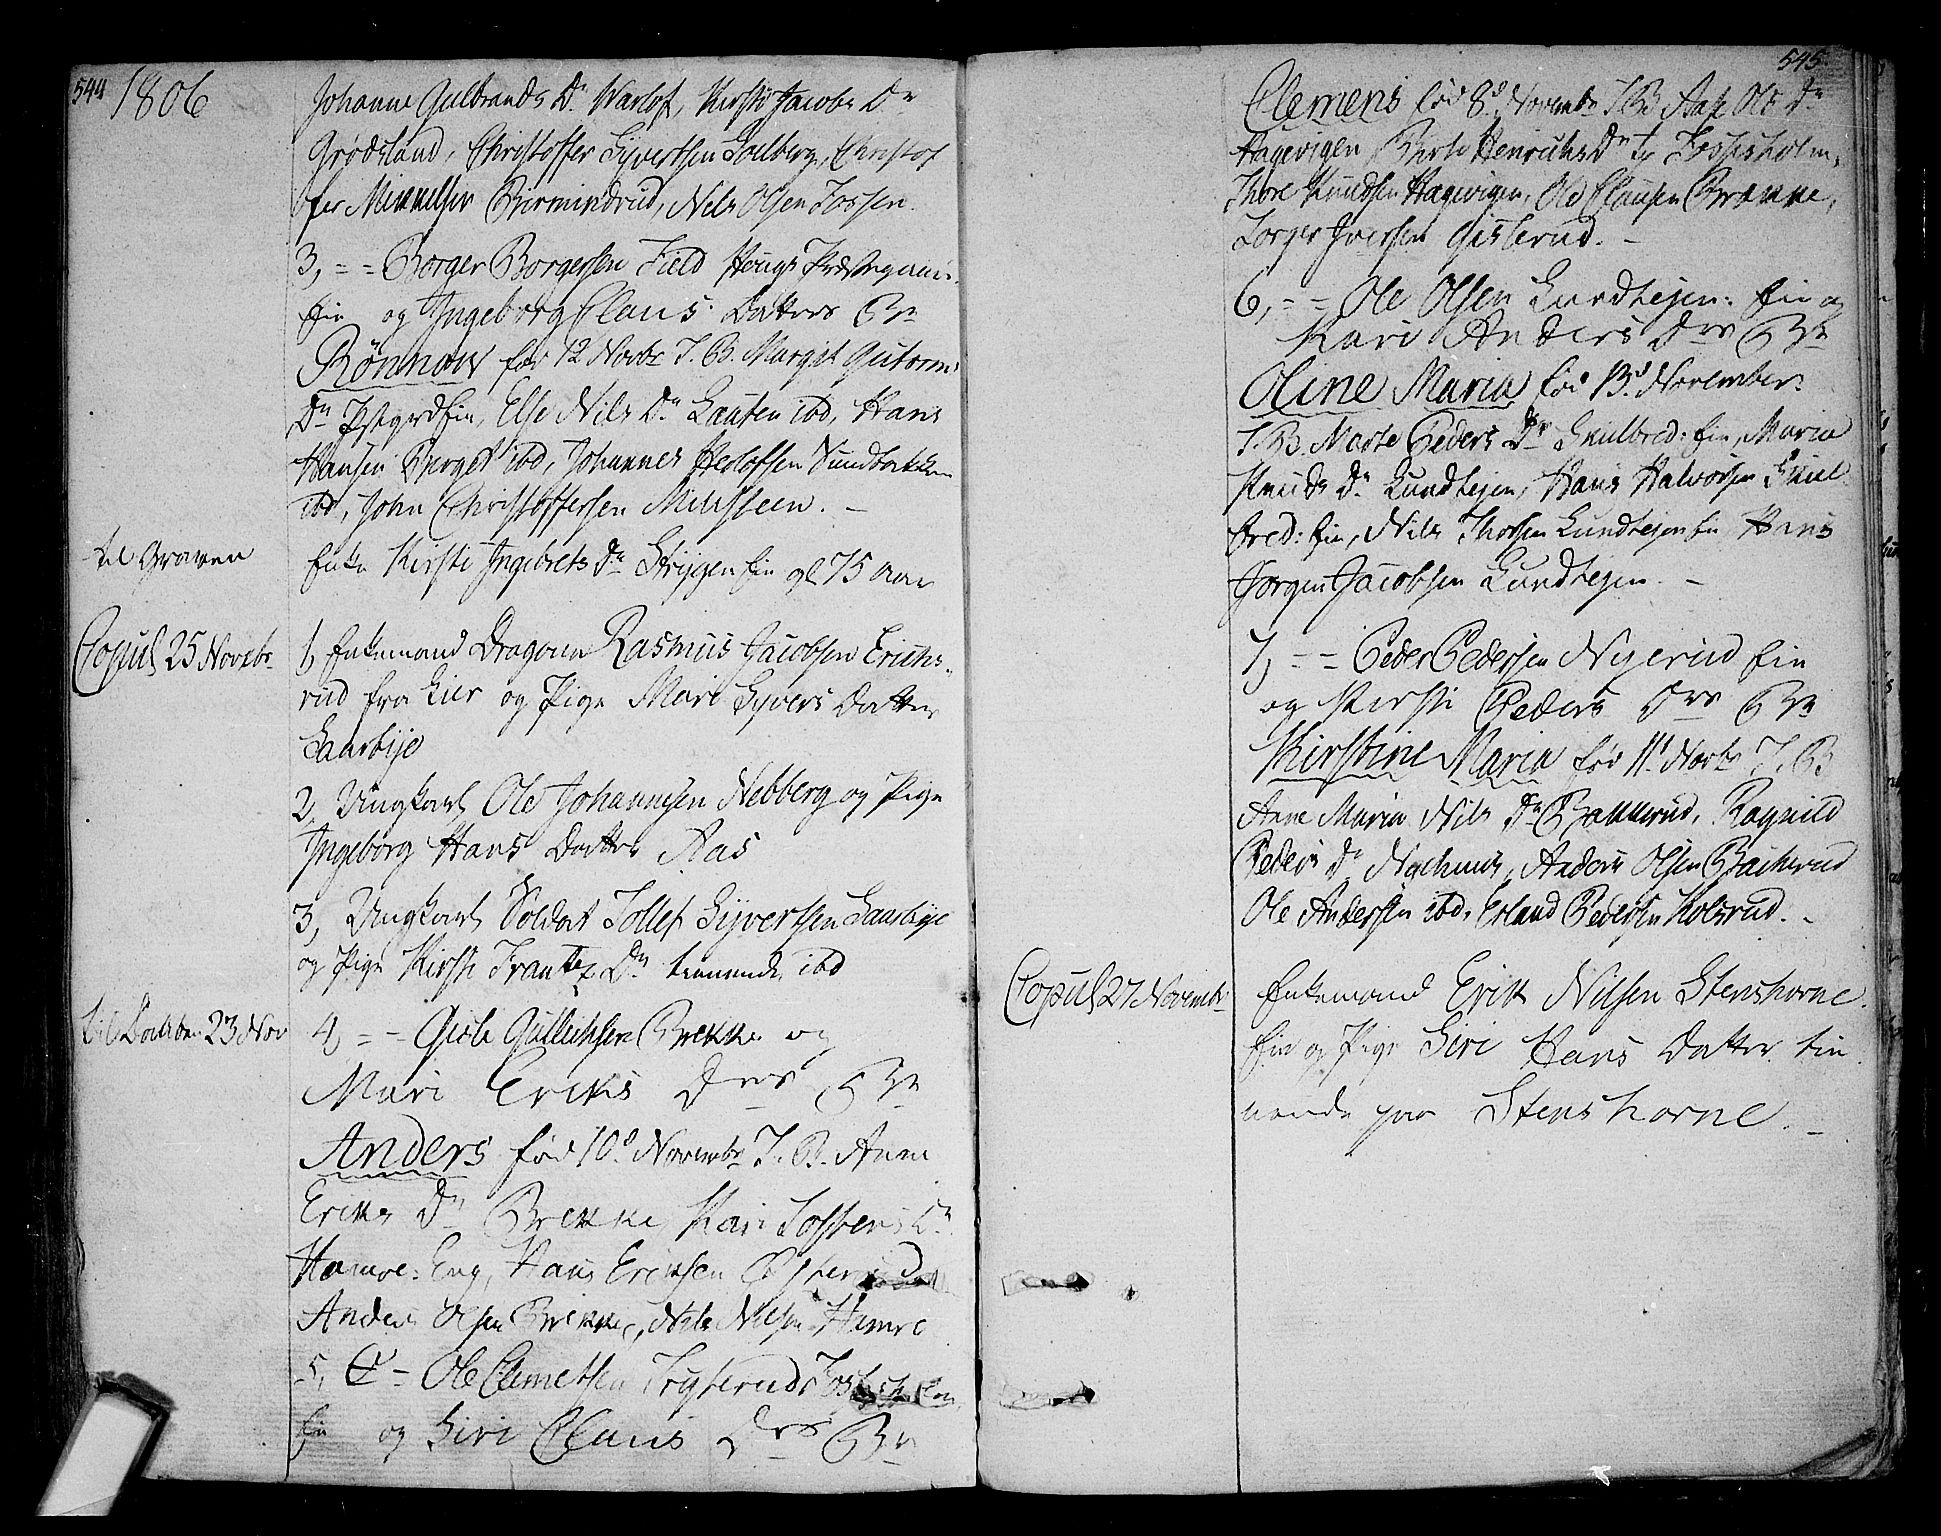 544
1806
Johanne Gulbrands Dr Warlof, Kirsti Jacobs Dr
Grødsland, Christoffer Syvertsen Solberg, Christof
fer Mikkelsen Birmindrud, Nils Olsen Fossen.
3, = = Borger Borgersen Field Hougs
Eie og Ingeborg Claus Datters Bn
Rönnow fød 12 Novbr T. B. Margit Gutorms
Dr Eie, Else Nils Dr Lauten ibd, Hans
Hansen Berget ibd, Johannes Sundbakken
ibd, John Christoffersen Milisteen. –
til Graven
Enke Kirsti Ingebrets Dr Stryggen Eie gl 75 aar
Copul 25 Novebr
1, Enkemand Dragoun Rasmus Jacobsen Erichs-
rud fra Lier og Pige Mari Syvers Datter
Saasbye
2, Ungkarl Ole Johannesen Nebberg og Pige
Ingeborg Hans Datter Aas
3, Ungkarl Soldat Tollef Syvertsen Saasbye
og Pige Kirsti Frantz Dr tienende ibd
til Daaben 23 Nov
4, = = Gisle Gulliksen Brekke og
Mari Eriks Drs Bn
Anders fød 10d Novembr T. B. Anne
Eriks Dr Brekke, Kari Tostens Dr
Hamre: Eng, Hans Eriksen
Anders Olsen Brekke, Nils Nilsen Hamre
5, = Ole Clemetsen
Eie og Siri Claus Drs Bn
545
Clemens fød 8d Novembr T. B. Aase Ols Dr
Hagevigen, Berte Henrichs Dr Fossesholm,
Thore Knudsen Hagevigen, Ole Clausen Bramne,
Torger Iversen Gisterud. –
6, = = Ole Olsen Lundtejen: Eie og
Kari Anders Drs Bn
Oline Maria fød 13d November.
T. B. Marte Peders Dr Skulbred: Eie, Maria
Knuds Dr Lundtejen, Hans Halvorsen Skul
bred: Eie, Nils Thorsen Lundtejen Eie, Hans
Jörgen Jacobsen Lundtejen. –
7, = = Peder Pedersen Nyerud Eie
og Kirsti Peders Drs Bn
Kirstine Maria fød 11d Novbr T. B.
Anne Maria Nils Dr Bakkerud, Ragnild
Peders Dr, Anders Olsen Bakkerud
Ole Andersen ibd, Erland Pedersen Kolsrud. –
Copul 27 Novembr
Enkemand Erik Nilsen Stenshorne
Eie og Pige Siri Hans Datter tie
nende paa Stenshorne. –